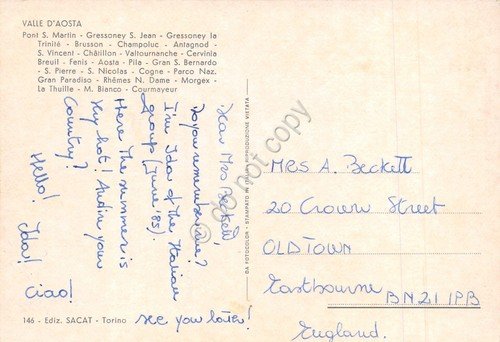 VALLE D'AOSTA
Pont S. Martin - Gressoney S. Jean - Gressoney la
Trinité - Brusson - Champoluc - Antagnod -
S. Vincent - Châtillon - Valtournanche - Cervinia
Breuil - Fenis - Aosta - Pila - Gran S. Bernardo
- S. Pierre - S. Nicolas - Cogne - Parco Naz.
Gran Paradiso - Rhêmes N. Dame - Morgex -
La Thuille - M. Bianco - Courmayeur
Dear Mrs Beckett,
Do you remember me?
I'm Ida of the Italian
group (June '85).
Here the summer is
very hot! And in your
Country?
Hello! Ida!
Ciao!
see you later!
146 - Ediz. SACAT - Torino
DA FOTOCOLOR - STAMPATO IN ITALIA - RIPRODUZIONE VIETATA
MRS A. Beckett
20 Crown Street
OLD TOWN
Eastbourne
BN21 1PB
England.
do not copy